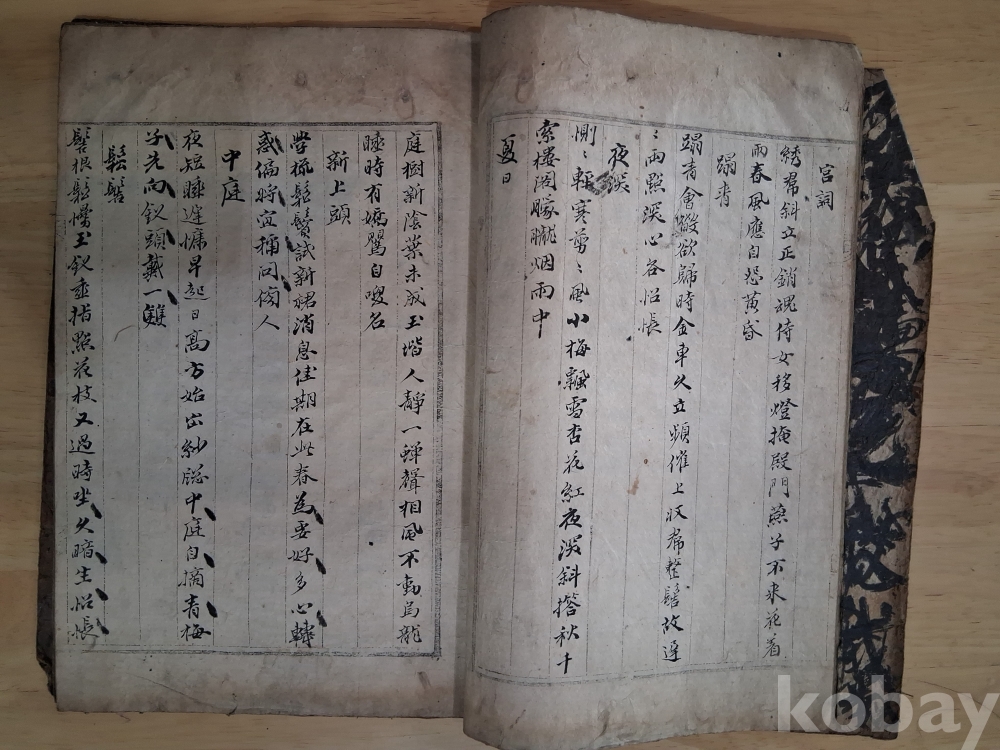 宮詞
綉帬斜立正銷魂侍女移燈掩殿門燕子不來花着
雨春風應自怨黃昏
蹋青
蹋青會散欲歸時金車久立頻催上収帬整髻故遅
〻兩點深心各怊悵
夜深
惻〻輕寒剪〻風小梅飄雪杏花紅夜深斜搭秋千
索樓閣朦朧烟雨中
夏日
庭樹新陰葉未成玉堦人靜一蟬聲相風不動烏龍
睡時有嬌鸎自喚名
新上頭
學梳鬆鬢試新裙消息佳期在此春為要好多心轉
惑偏將宜稱問傍人
中庭
夜短睡遅慵早起日高方始出紗窓中庭自摘青梅
子先向釵頭戴一雙
鬆髻
鬢根鬆慢玉釵垂指點花枝又過時坐久暗生怊悵
kobay